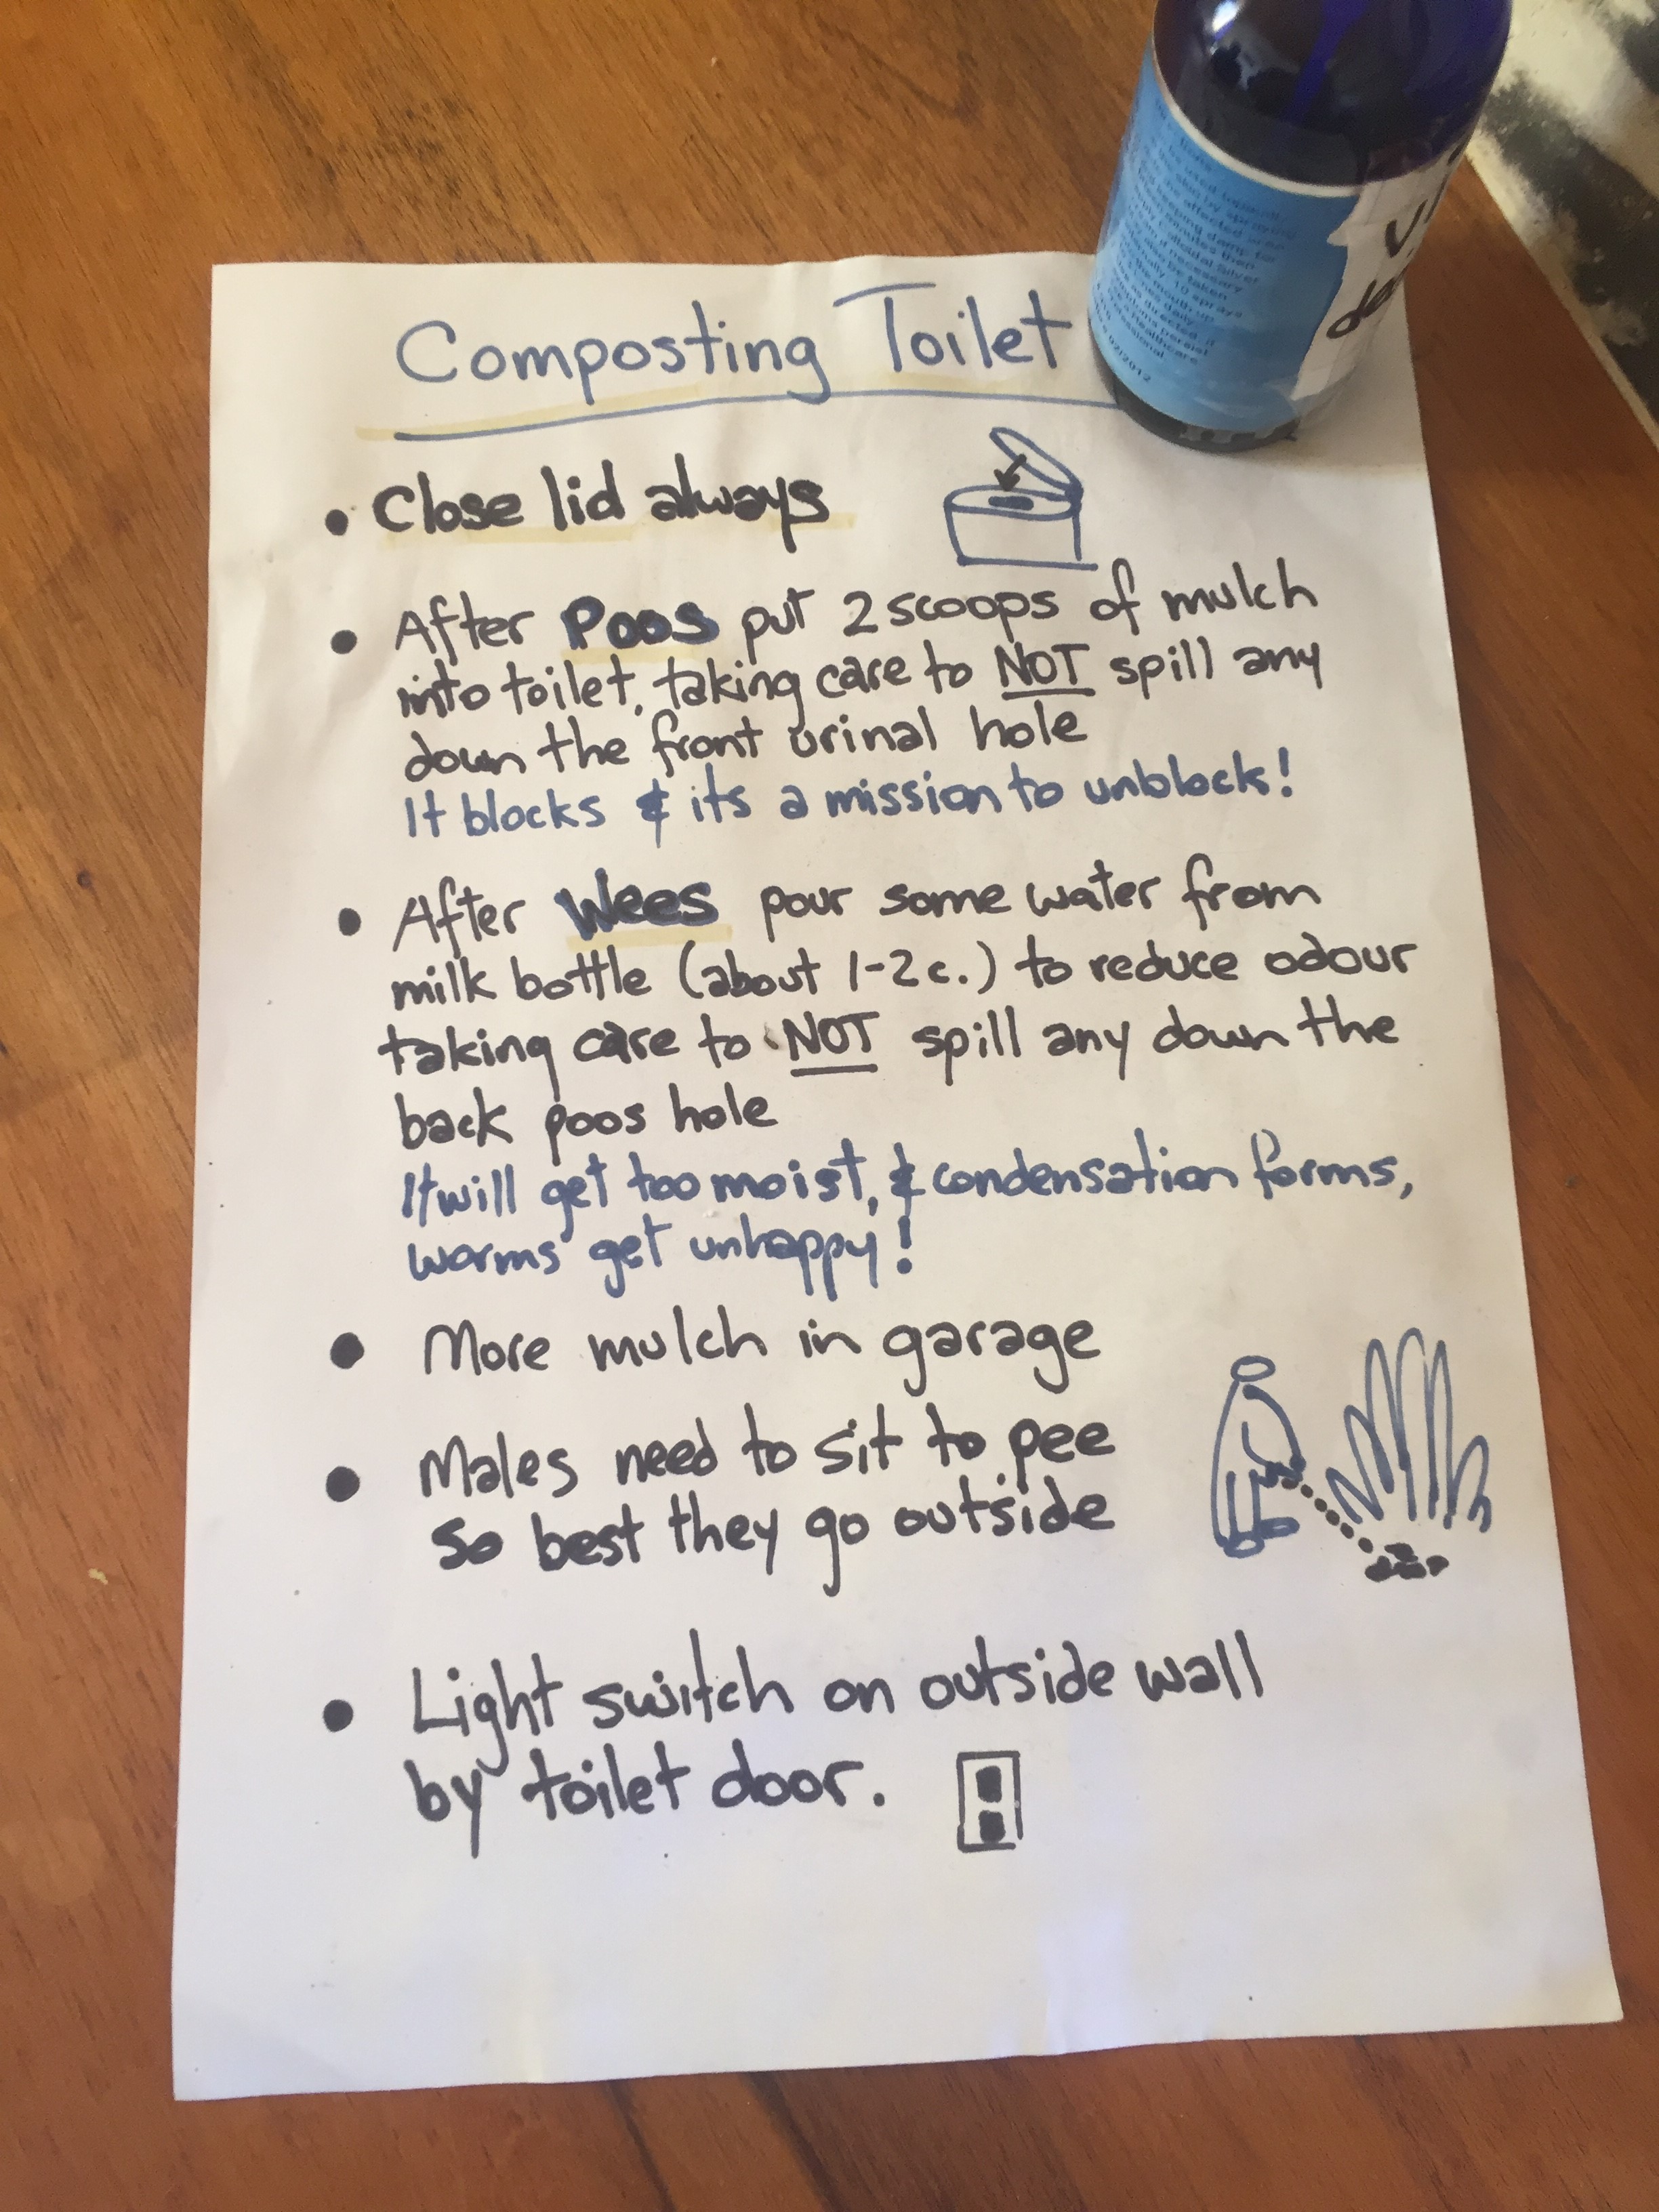 Composting Toilet
• Close lid always
• After Poos put 2 scoops of mulch
into toilet, taking care to NOT spill any
down the front urinal hole
It blocks & its a mission to unblock!
• After Wees pour some water from
milk bottle (about 1-2c.) to reduce odour
taking care to NOT spill any down the
back poos hole
It will get too moist, & condensation forms,
worms get unhappy!
• More mulch in garage
• Males need to sit to pee
so best they go outside
• Light switch on outside wall
by toilet door.
affected area
damp for
minutes then
necessary
be taken
10 sprays
daily
directed
healthcare
02/2012